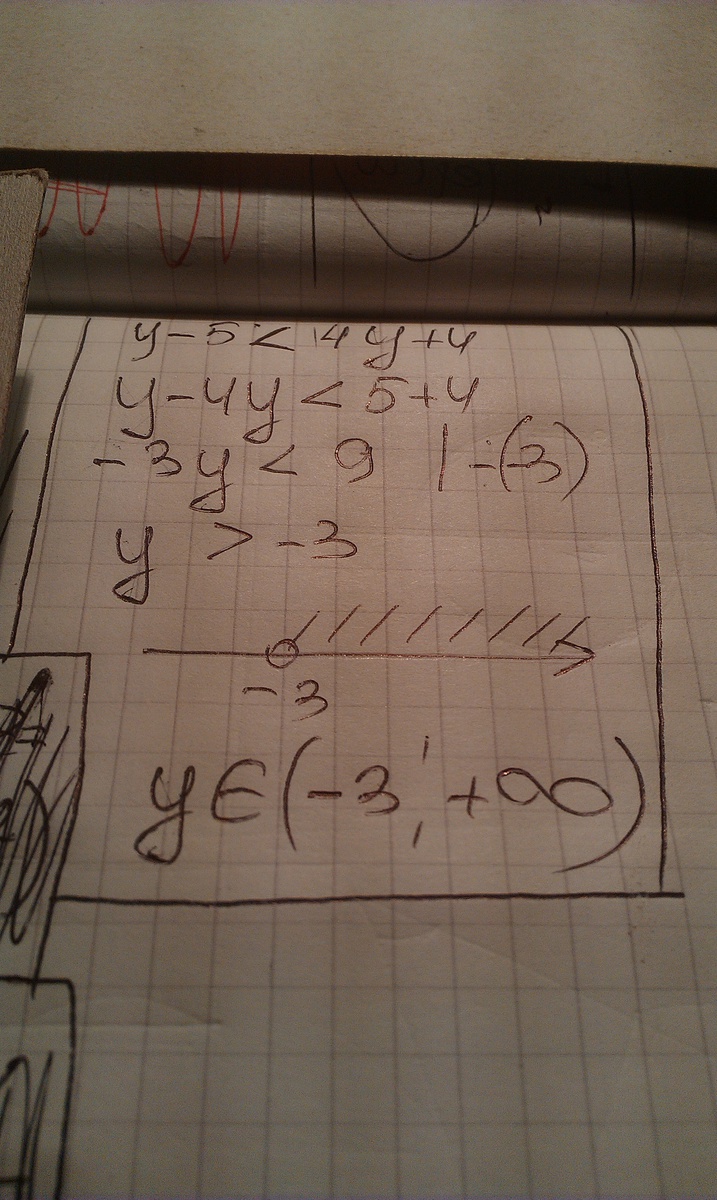 y-5<4y+4
y-4y<5+4
-3y<9 |÷(-3)
y>-3
-3
y∈(-3;+∞)